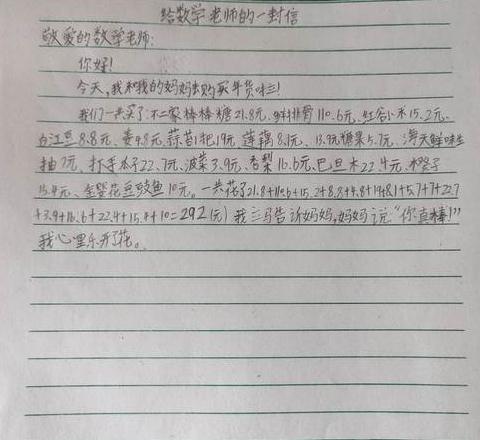 给数学老师的一封信
敬爱的数学老师:
你好!
今天,我和我的妈妈去购买年货啦!
我们一共买了:不二家棒棒糖21.8元、鲜排骨110.6元、红谷小米15.2元、
白江豆8.8元、姜4.8元、蒜苗1把19元、莲藕8.1元、13.9元糖果5.7元、海天鲜味生
抽7元、打手瓜子22.7元、菠菜3.9元、香梨16.6元、巴旦木22.4元、橙子
15.4元、金登花豆豉鱼10元。一共花了21.8+110.6+15.2+8.8+4.8+19+8.1+5.7+7+22.7
+3.9+16.6+22.4+15.4+10=292(元)我立马告诉妈妈,妈妈说“你真棒!”
我心里乐开了花。